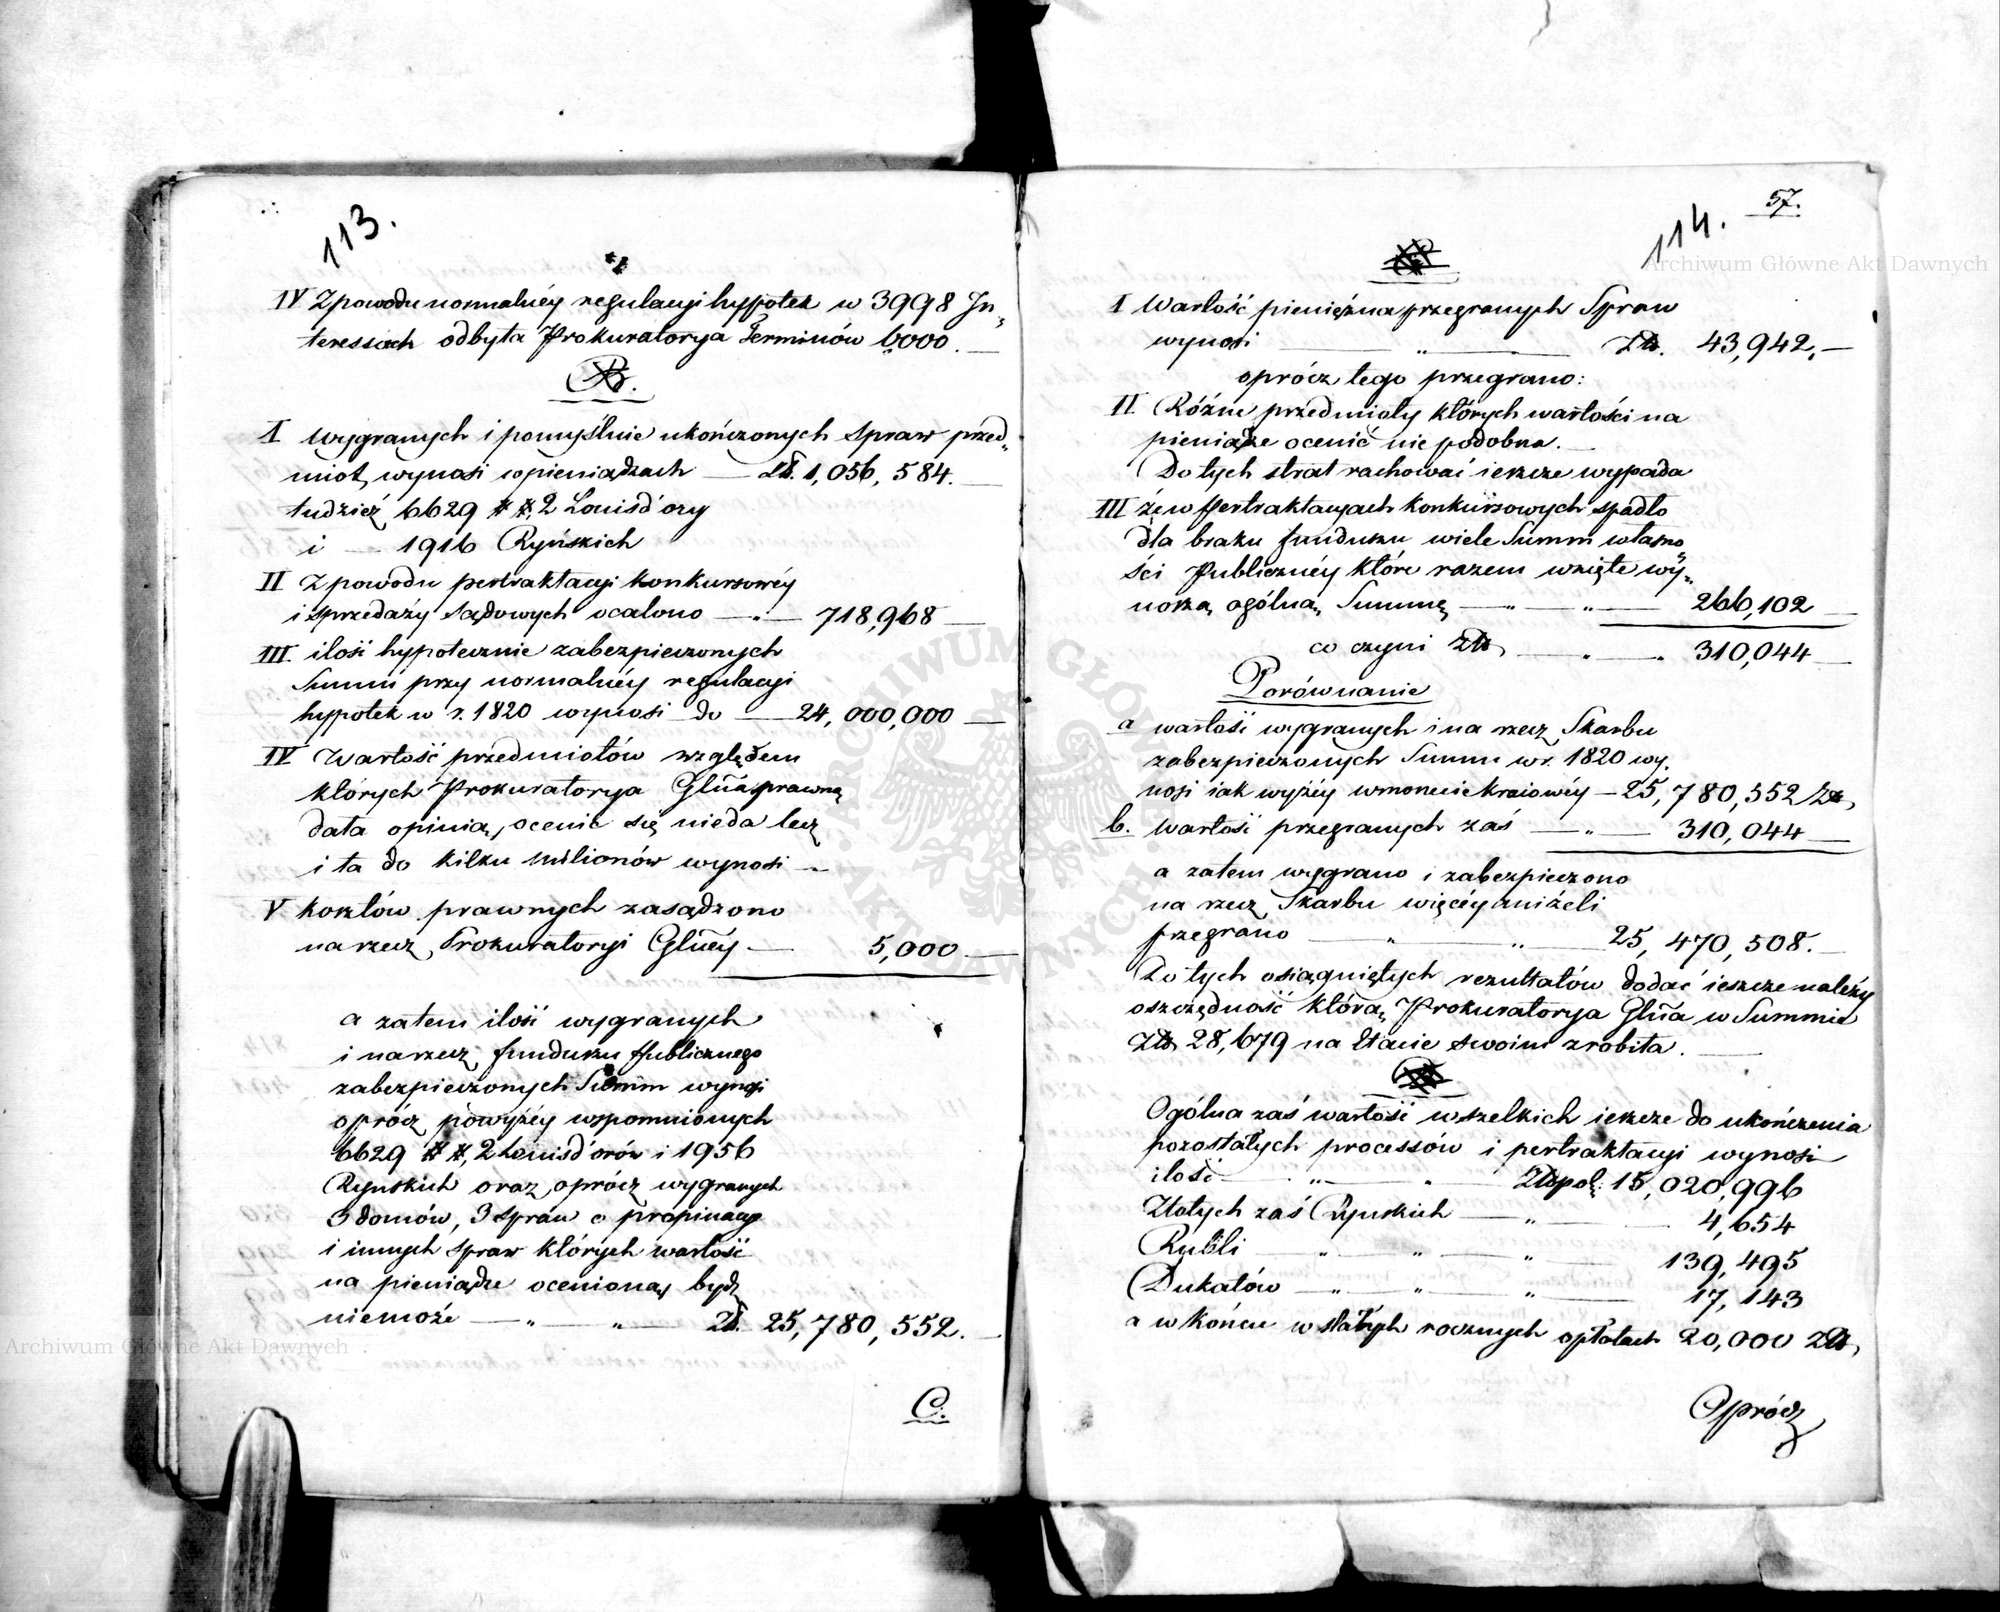 113.
IV Z powodu normalnéy regulacyi hypotek w 3998 In„
teressach odbyła Prokuratorya Terminów 6000.
B.
I Wygranych i pomyślnie ukończonych spraw przed„
miot, wynosi w pieniądzach — Zł. 1,056,584.
tudzież 6629 ##, 2 Louisd'ory
i — 1916 Ryńskich
II Z powodu pertraktacyi konkursowéy
i sprzedaży sądowych ocalono — „ — 718,968
III ilość hypotecznie zabezpieczonych
Summ przy normalnéy regulacyi
hypotek w r. 1820 wynosi do — 24,000,000
IV Wartość przedmiotów względem
których Prokuratorya Głna prawną
dała opinią, ocenić się nieda lecz
i ta do kilku milionów wynosi —
V kosztów prawnych zasądzono
na rzecz Prokuratoryi Głnéy — 5,000
a zatem ilość wygranych
i na rzecz funduszu Publicznego
zabezpieczonych Summ wynosi
oprócz powyżéy wspomnionych
6629 ##, 2 Louisd'orów i 1956
Ryńskich oraz oprócz wygranych
3 domów, 3 spraw o propinacyę
i innych spraw których wartość
na pieniądze ocenioną bydź
niemoże — „ — „ — Zł. 25,780,552.
C.
57.
114.
I Wartość pieniężna przegranych Spraw
wynosi — „ — Zł. 43,942,—
oprócz tego przegrano:
II Różne przedmioty których wartości na
pieniądze ocenić nie podobna.
Do tych strat rachować ieszcze wypada
III że w Pertraktacyach konkursowych spadło
dla braku funduszu wiele Summ własno
ści Publicznéy które razem wzięte wy„
noszą ogólną Summę — „ — „ — 266,102
co czyni Złł. — „ — „ 310,044
Porównanie
a wartość wygranych i na rzecz Skarbu
zabezpieczonych Summ w r. 1820 wy.
nosi iak wyżéy w monecie kraiowéy — 25,780,552 Zł.
b. Wartość przegranych zaś — „ — 310,044
a zatem wygrano i zabezpieczono
na rzecz Skarbu więcéy aniżeli
przegrano — „ — „ — 25,470,508.
Do tych osiągniętych rezultatów dodać ieszcze należy
oszczędność którą Prokuratorya Głna w Summie
Złł. 28,679 na Etacie swoim zrobiła.
Ogólna zaś wartość wszelkich ieszcze do ukończenia
pozostałych processów i pertraktacyi wynosi
ilość — „ — „ Złłpol: 15,020,996
Złotych zaś Ryńskich — „ — 4,654
Rubli — „ — „ — „ 139,495
Dukatów — „ — „ — „ — 17,143
a w końcu w stałych rocznych opłatach 20,000 Złł.
Oprócz
Archiwum Główne Akt Dawnych
Archiwum Główne Akt Dawnych
ARCHIWUM GŁÓWNE AKT DAWNYCH